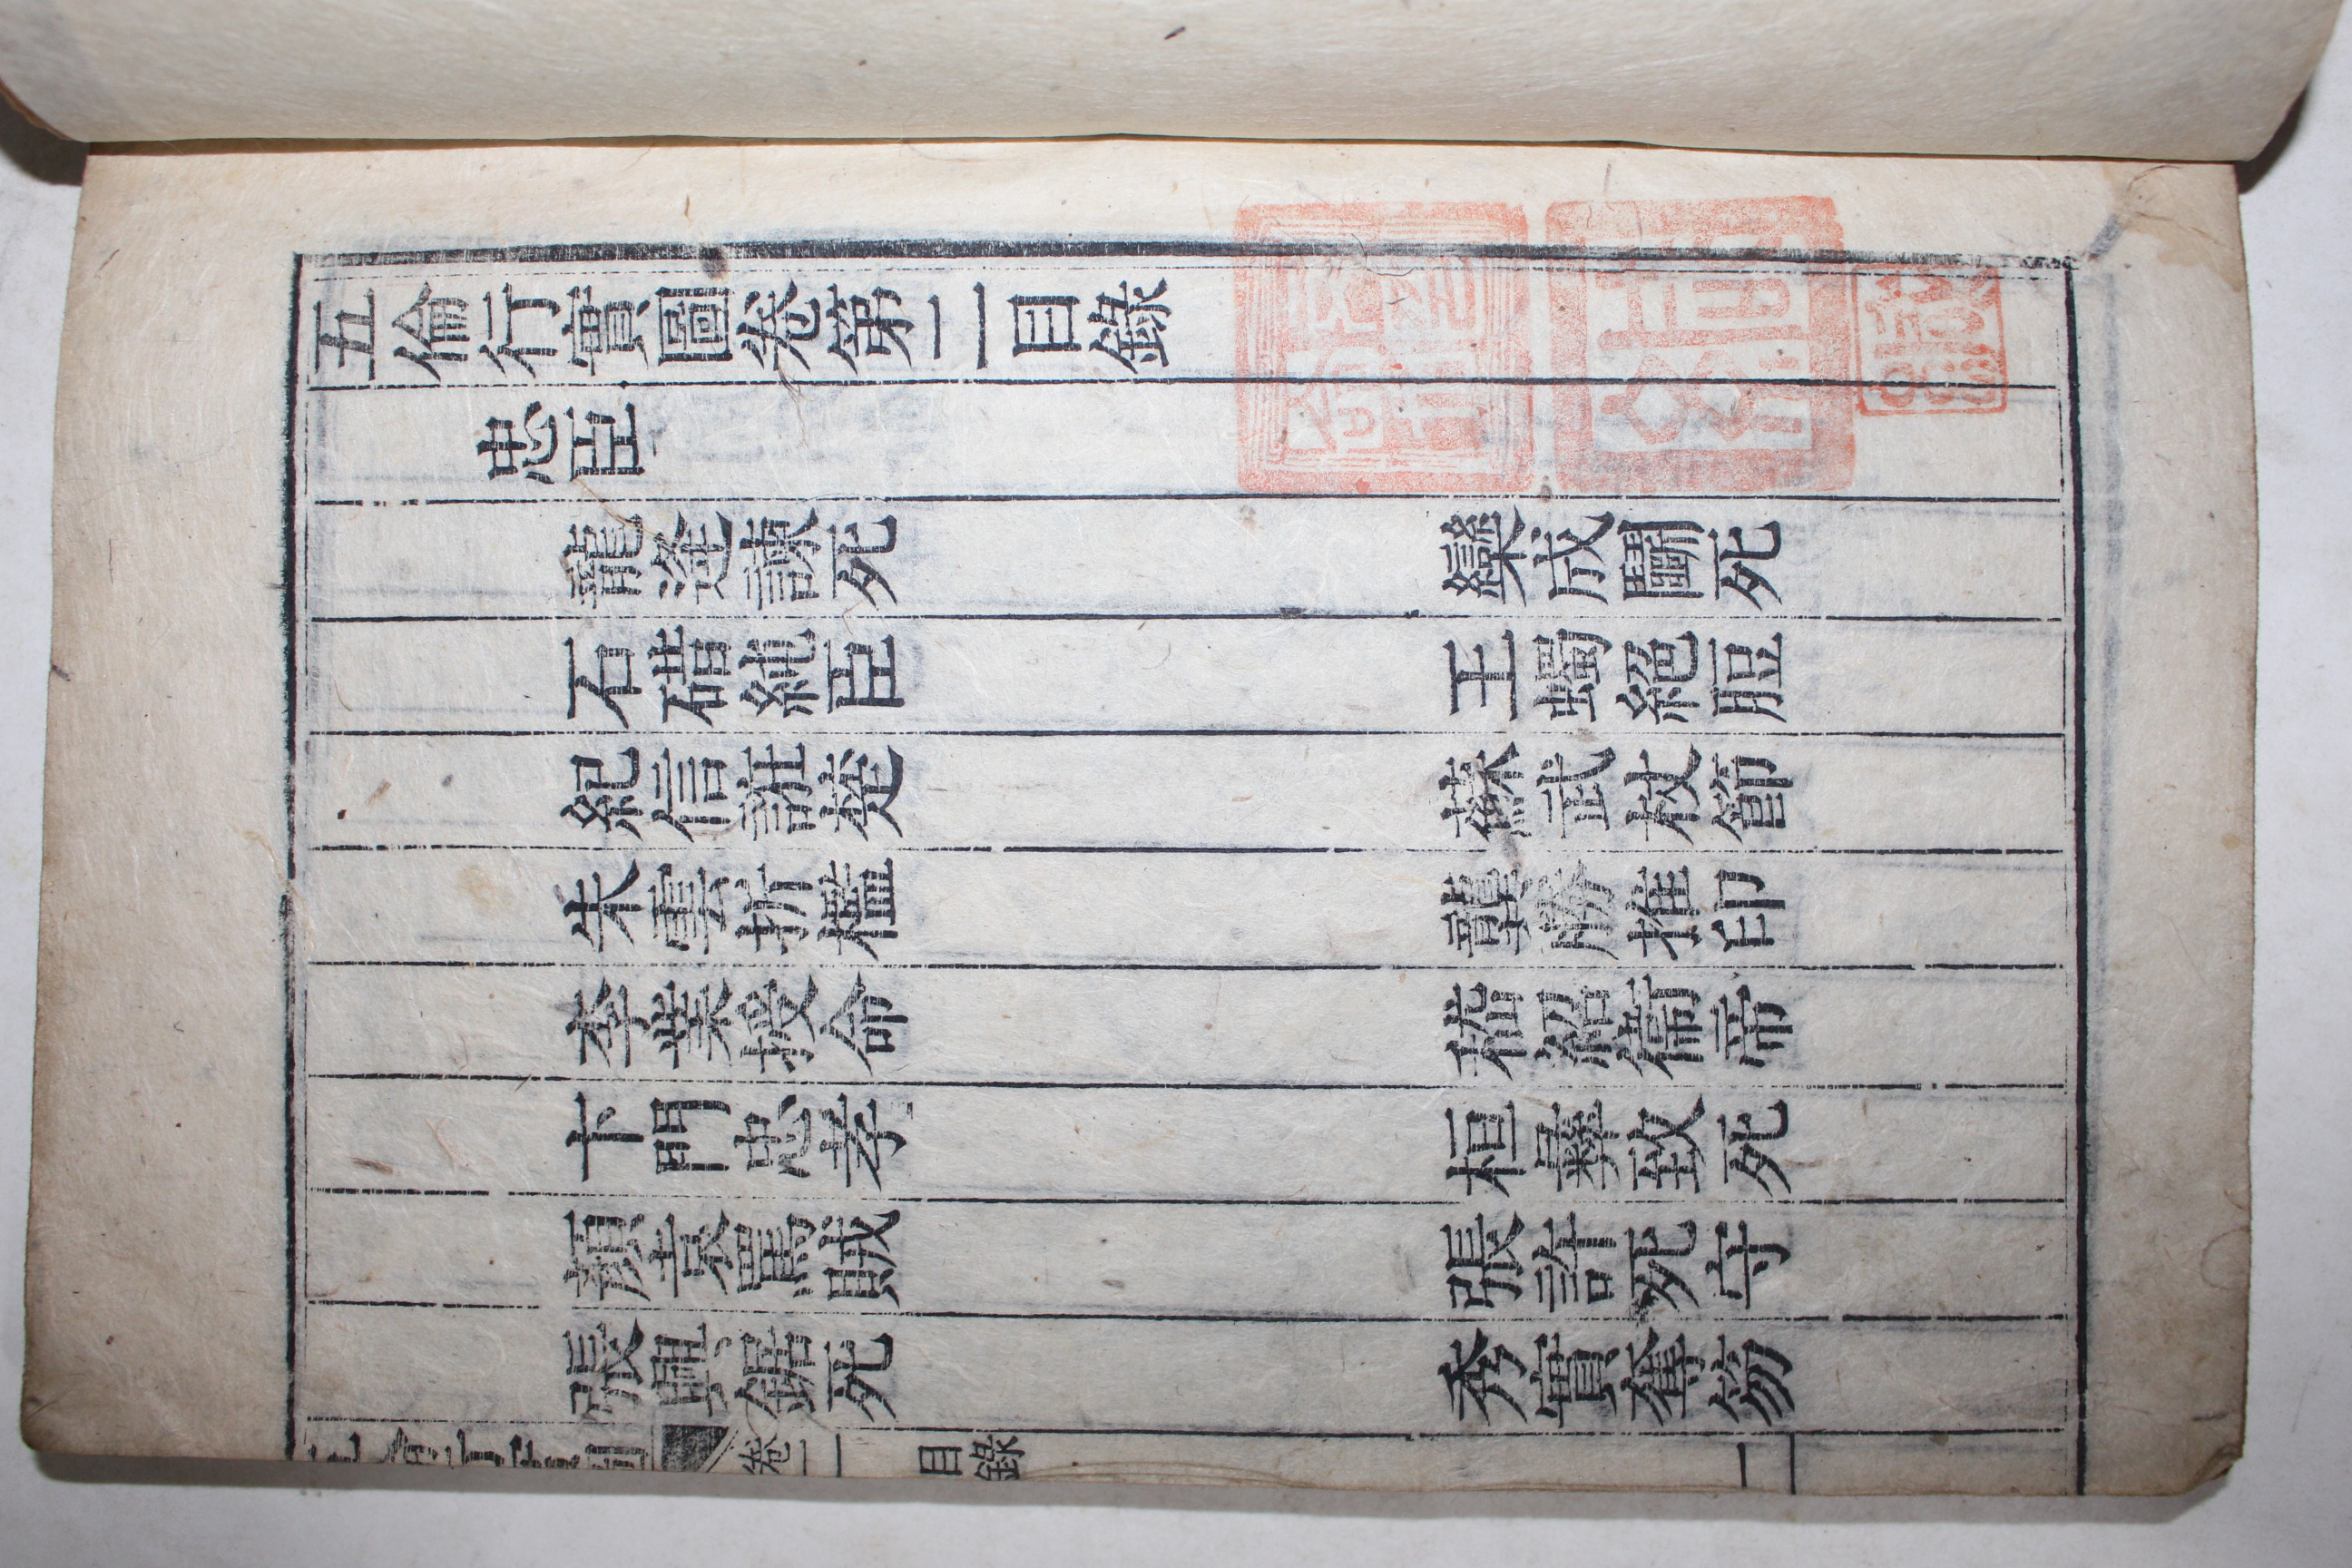 五倫行實圖卷第二目錄
忠臣
龍逄諫死 欒成鬪死
石碏純臣 王蠋絕脰
紀信誑楚 蘇武杖節
朱雲折檻 龔勝推印
李業授命 嵇紹衛帝
卞門忠孝 桓彝致死
顏袁罵賊 張許死守
張興鋸死 秀實奪笏
卷二 目錄 一